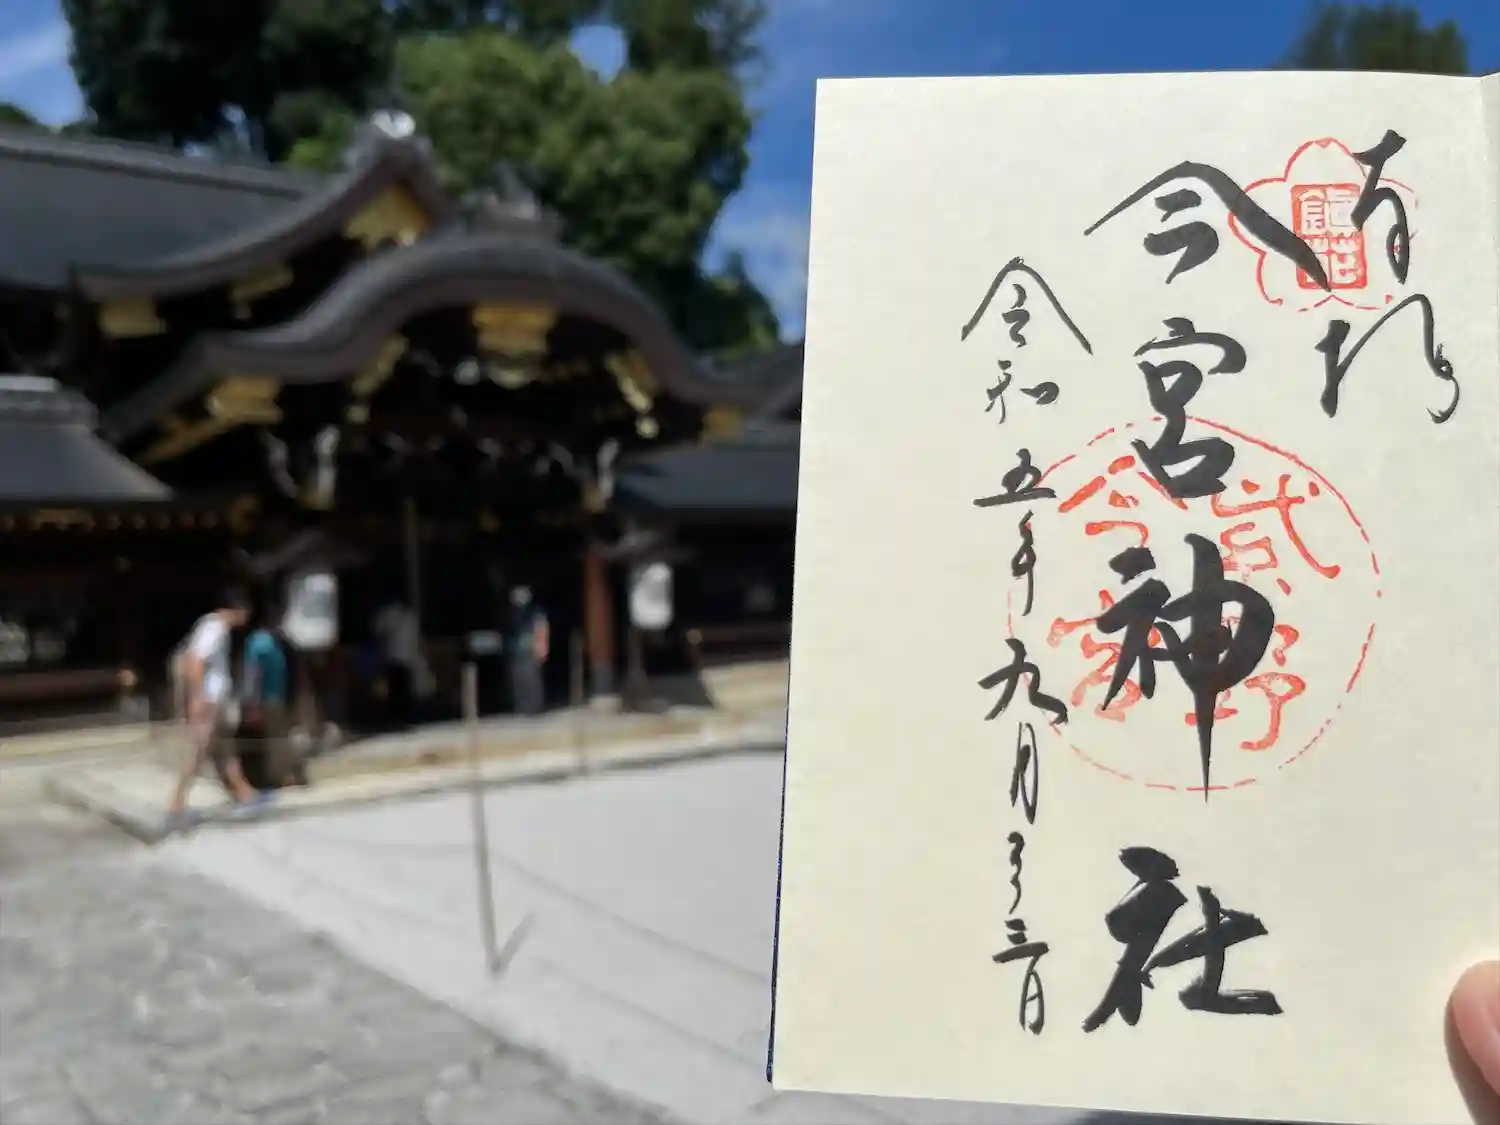 奉拝
鎮花
今宮神社
紫野
今宮
令和五年九月 三日